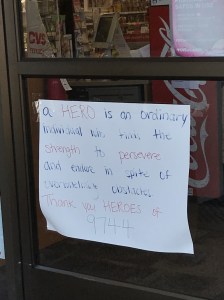 CVS
a HERO is an ordinary
individual who finds the
strength to persevere
and endure in spite of
overwhelming obstacles.
Thank you HEROES of
9744